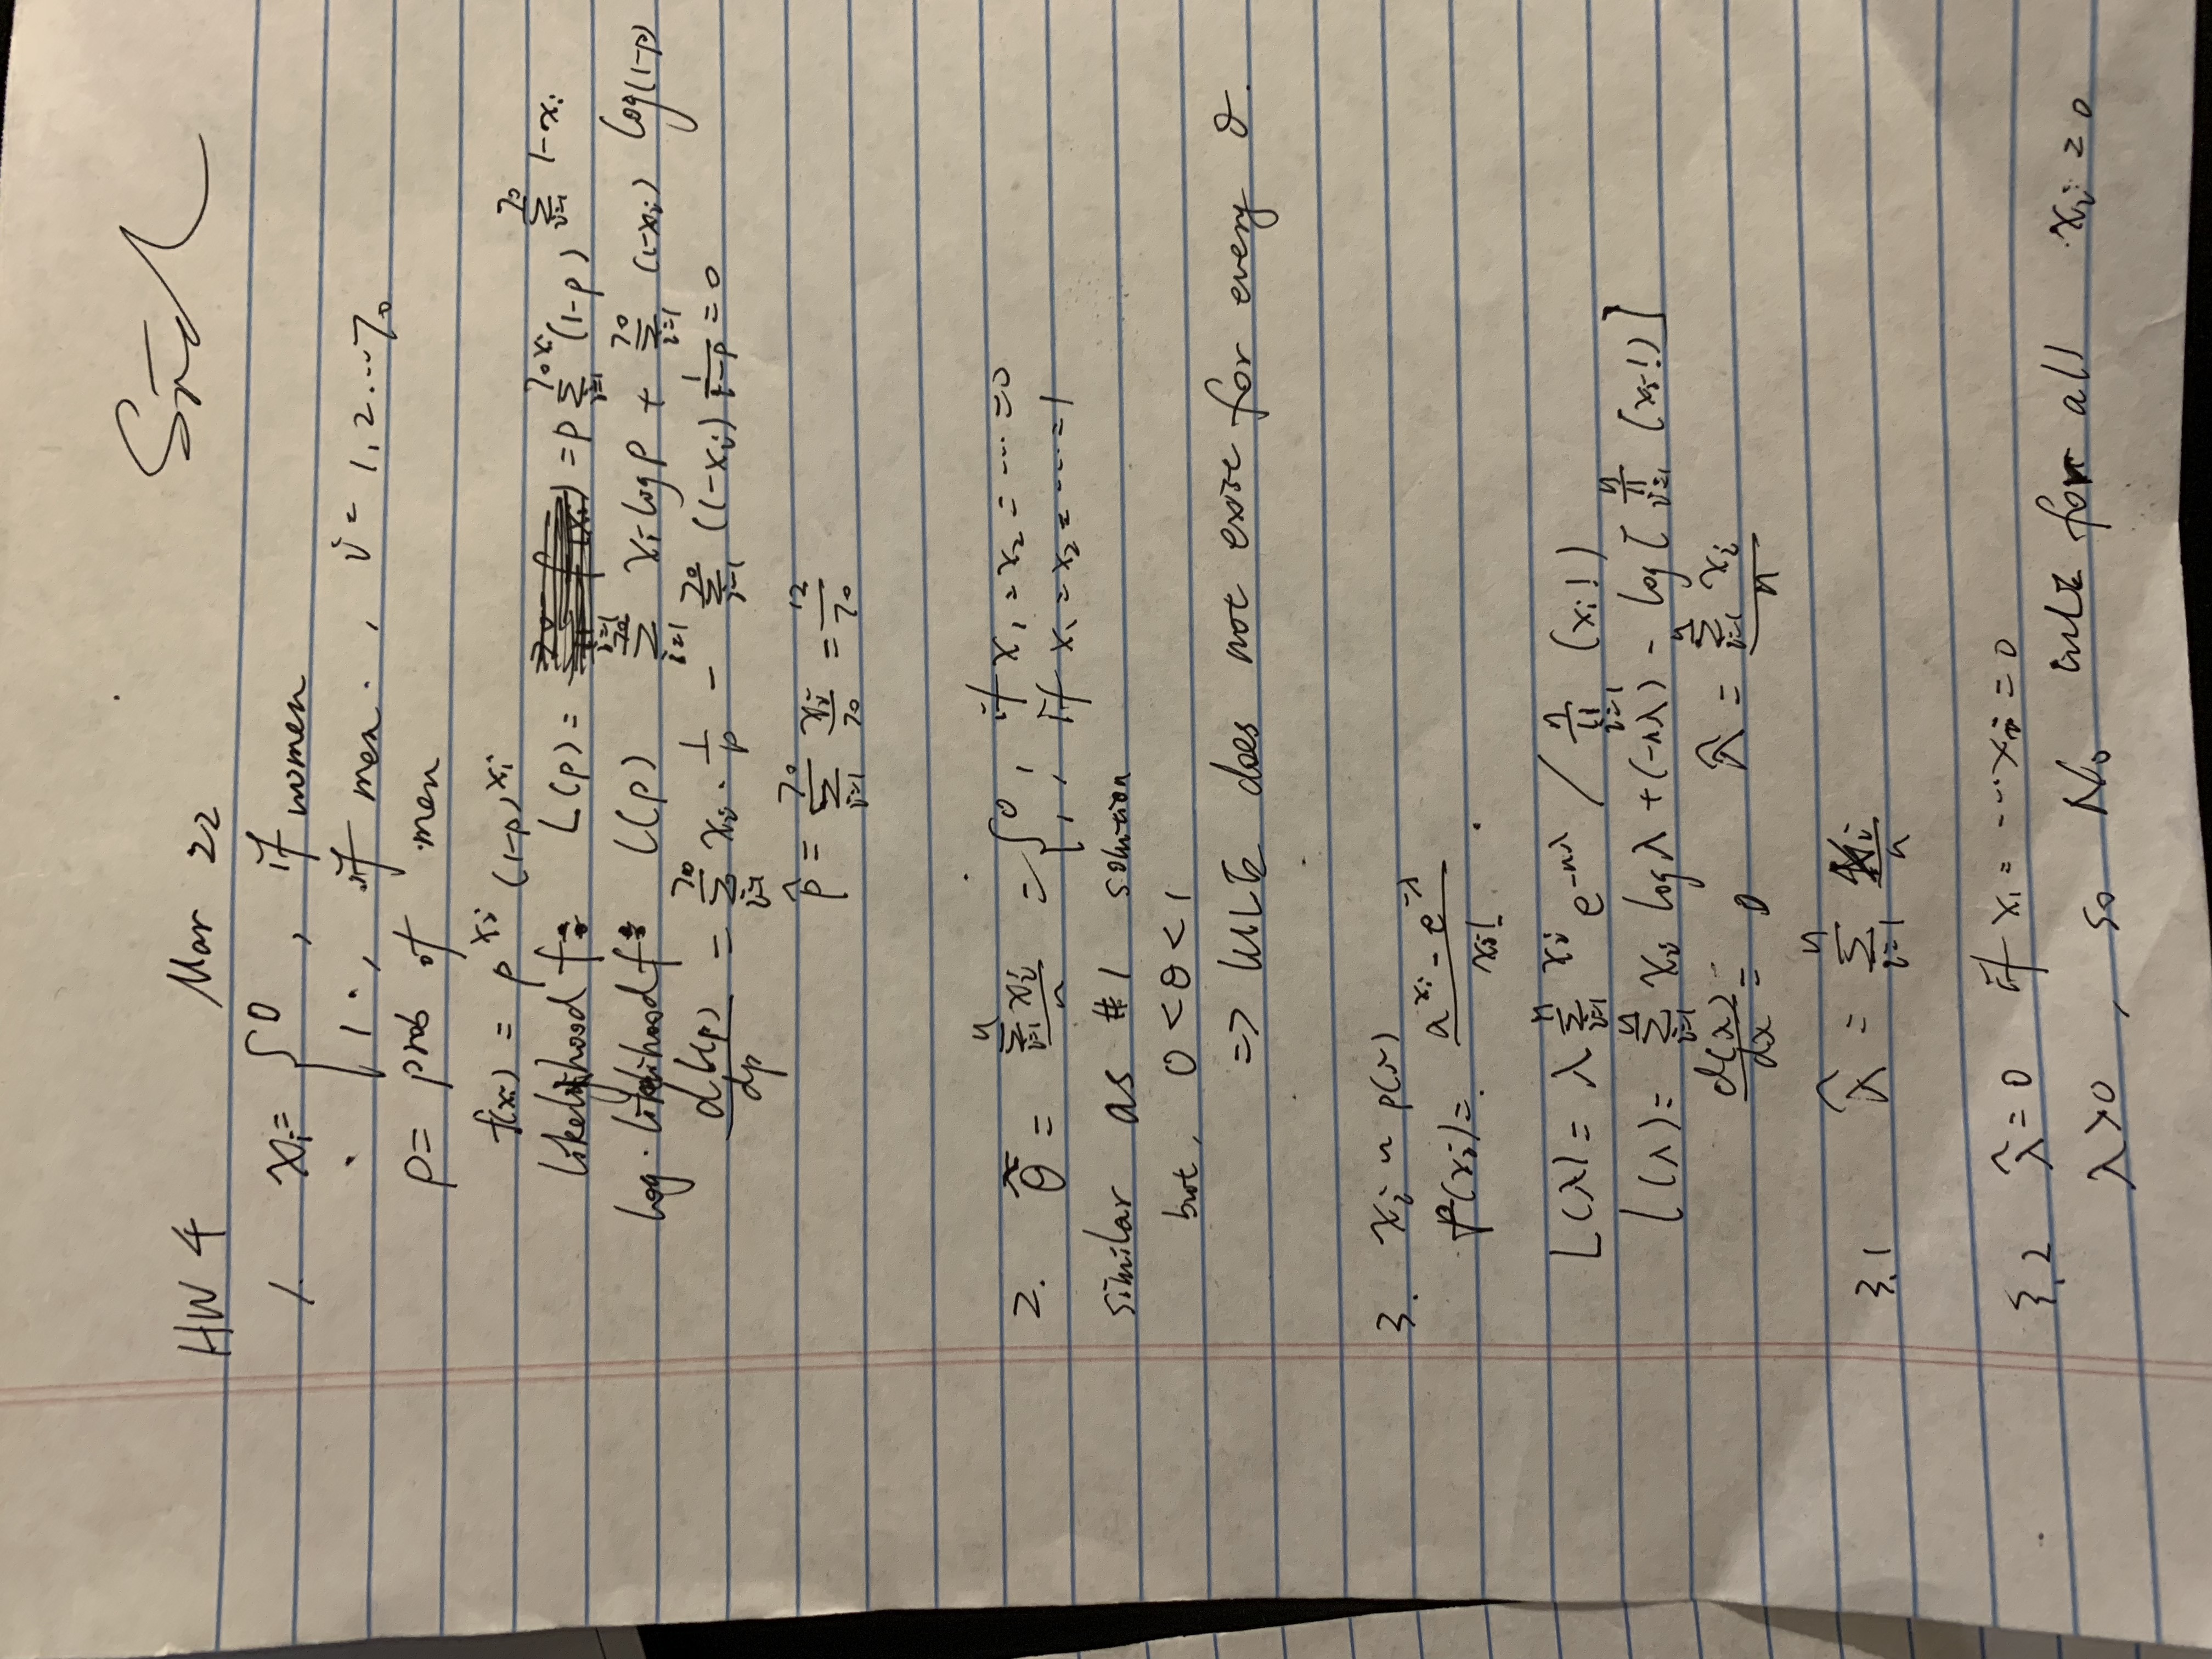 HW 4 Mar 22
1. xᵢ = { 0 , if women
1 , if men , i = 1, 2 ... 70
p = prob of men
f(xᵢ) = p^xᵢ (1-p)^xᵢ
likelihood f: L(p) = = p^Σ_{i=1}^{70} xᵢ (1-p)^Σ_{i=1}^{70} 1-xᵢ
log-likelihood f: l(p) Σ_{i=1}^{70} xᵢ log p + Σ_{i=1}^{70} (1-xᵢ) log(1-p)
dl(p)/dp = Σ_{i=1}^{70} xᵢ · 1/p - Σ_{i=1}^{70} (1-xᵢ) 1/(1-p) = 0
p̂ = Σ_{i=1}^{70} xᵢ/70 = 12/70
2. θ̂ = Σ_{i=1}^{n} xᵢ / n = { 0 , if x₁ = x₂ = ... = 0
1 , if x₁ = x₂ = ... = 1
similar as #1 solution
but, 0 < θ < 1
=> MLE does not exist for every θ.
3. xᵢ ~ p(λ)
f(xᵢ) = (a^xᵢ - e^-λ) / xᵢ!
L(λ) = λ^Σ_{i=1}^{n} xᵢ e^-nλ / Π_{i=1}^{n} (xᵢ!)
l(λ) = Σ_{i=1}^{n} xᵢ log λ + (-nλ) - log [ Π_{i=1}^{n} (xᵢ!) ]
d(λ)/dλ = 0 λ̂ = Σ_{i=1}^{n} xᵢ / n
3.1 λ̂ = Σ_{i=1}^{n} Xᵢ/n
3.2 λ̂ = 0 if x₁ = ... xₙ = 0
λ > 0 , so No MLE for all xᵢ = 0